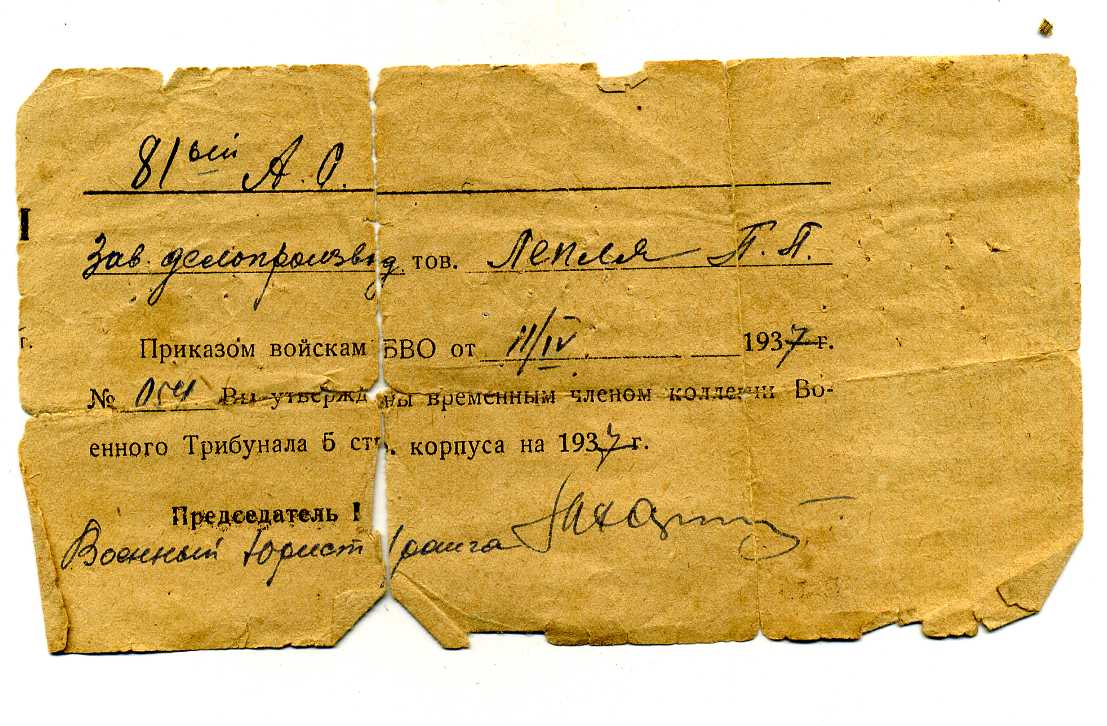 81ый А.С.
Зав. делопроизвод тов. Лепля П.П.
Приказом войскам БВО от 11/IV 1937 г.
№ 054 Вы утвержд ны временным членом коллегии Во-
енного Трибунала 5 стр. корпуса на 1937 г.
Председатель
Военный Юрист 1 ранга